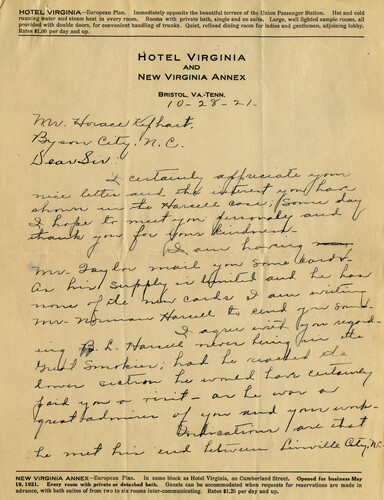 HOTEL VIRGINIA—European Plan. Immediately opposite the beautiful terrace of the Union Passenger Station. Hot and cold
running water and steam heat in every room. Rooms with private bath, single and en suite. Large, well lighted sample rooms, all
provided with double doors, for convenient handling of trunks. Quiet, refined dining room for ladies and gentlemen, adjoining lobby.
Rates $1.00 per day and up.
HOTEL VIRGINIA
AND
NEW VIRGINIA ANNEX
BRISTOL, VA.-TENN.
10-28-21.
Mr. Horace Kephart.
Bryson City, N.C.
Dear Sir:
I certainly appreciate your
nice letter and the interest you have
shown in the Harsell case, Some day
I hope to meet you personaly and
thank you for your kindness—
I am having
Mr. Taylor mail you some cards—
As his supply is limited and he has
none of the new cards I am writing
Mr. Norman Harsell to send you some
I agree with you regard-
ing B. L. Harsell never being in the
Great Smokies; had he reached the
lower section he would have certainly
paid you a visit — as he was a
great admirer of you and your work—
Indications are that
he met his end between Linville City, N.C.
NEW VIRGINIA ANNEX—European Plan. In same block as Hotel Virginia, on Cumberland Street. Opened for business May
19, 1921. Every room with private or detached bath. Guests can be accommodated when requests for reservations are made in
advance, with bath suites of from two to six rooms inter-communicating. Rates $1.25 per day and up.